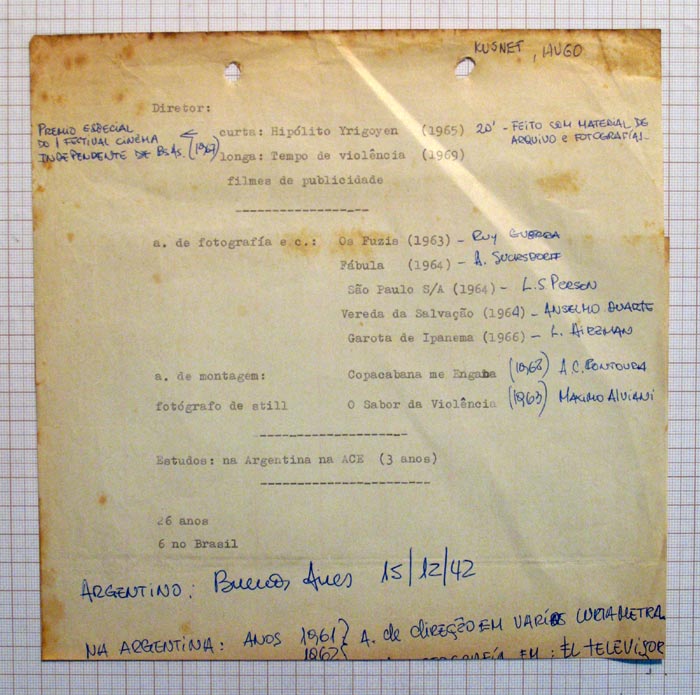 KUSNET, HUGO
Diretor:
PREMIO ESPECIAL
DO I FESTIVAL CINEMA
INDEPENDENTE DE BS.AS. (1967)
curta: Hipólito Yrigoyen (1965) 20' - FEITO COM MATERIAL DE
ARQUIVO E FOTOGRAFÍAS -
longa: Tempo de violência (1969)
filmes de publicidade
a. de fotografía e c.: Os Fuzis (1963) - RUY GUERRA
Fábula (1964) - A. SUCKSDORFF
São Paulo S/A (1964) - L.S. PERSON
Vereda da Salvação (1964) - ANSELMO DUARTE
Garota de Ipanema (1966) - L. HIRZMAN
a. de montagem: Copacabana me Engana (1968) A.C. FONTOURA
fotógrafo de still O Sabor da Violência (1963) MAXIMO ALVIANI
Estudos: na Argentina na ACE (3 anos)
26 anos
6 no Brasil
ARGENTINO: Buenos Aires 15/12/42
NA ARGENTINA: ANOS 1961 } A. de DIREÇÃO EM VARIOS CURTAMETRA
1962 EM: EL TELEVISOR